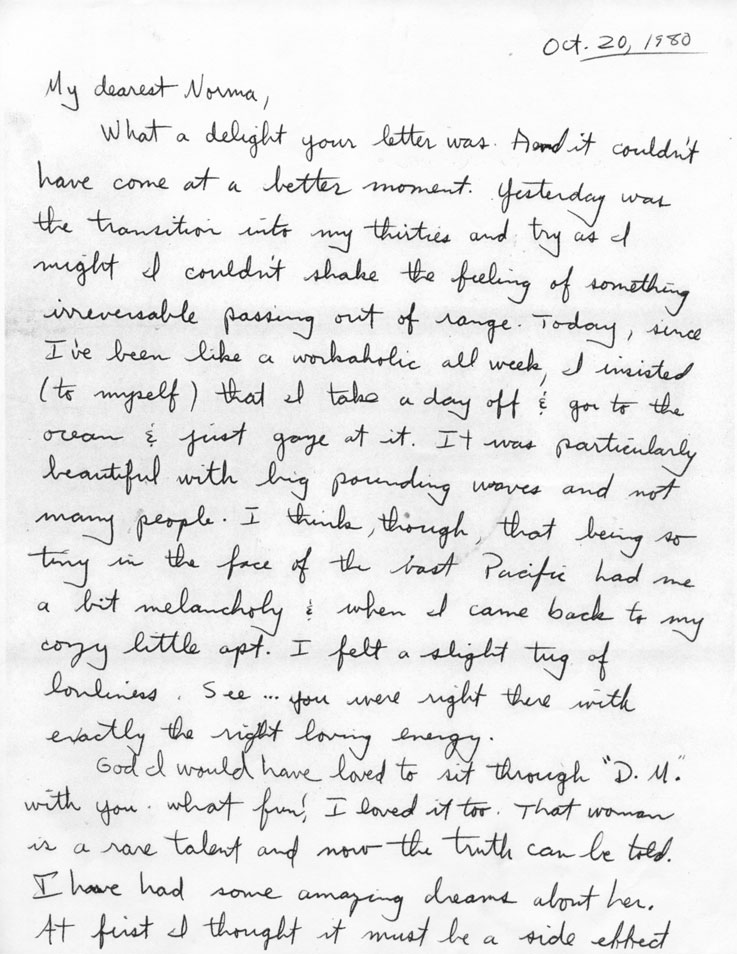 Oct. 20, 1980
My dearest Norma,
What a delight your letter was. And it couldn't
have come at a better moment. Yesterday was
the transition into my thirties and, try as I
might I couldn't shake the feeling of something
irreversable passing out of range. Today, since
I've been like a workaholic all week, I insisted
(to myself) that I take a day off & go to the
ocean & just gaze at it. It was particularly
beautiful with big pounding waves and not
many people. I think, though, that being so
tiny in the face of the vast Pacific had me
a bit melancholy & when I came back to my
cozy little apt. I felt a slight tug of
lonliness. See... you were right there with
exactly the right loving energy.
God I would have loved to sit through "D. M."
with you. What fun! I loved it too. That woman
is a rare talent and now the truth can be told.
I have had some amazing dreams about her.
At first I thought it must be a side effect